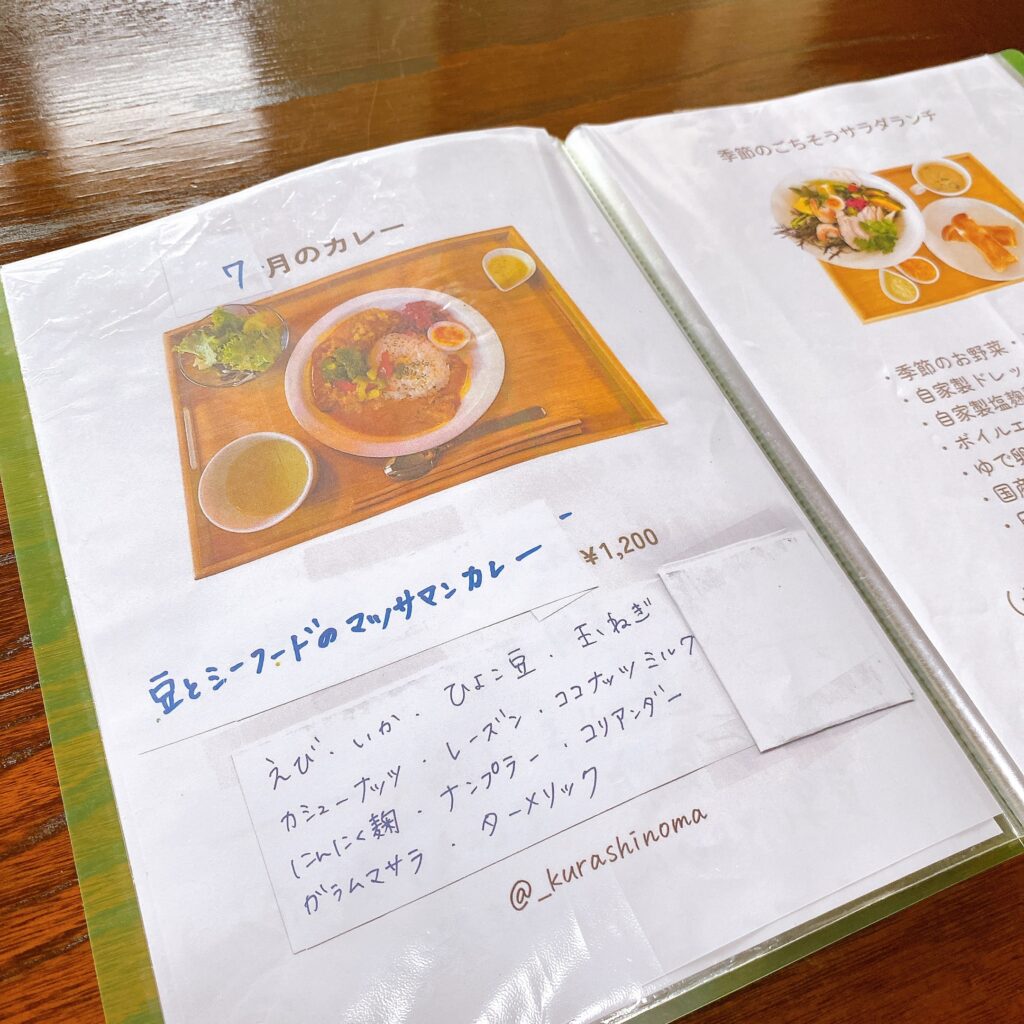 7月のカレー
豆とシーフードのマッサマンカレー
¥1,200
えび・いか・ひよこ豆・玉ねぎ
カシューナッツ・レーズン・ココナッツミルク
にんにく麹・ナンプラー・コリアンダー
ガラムマサラ・ターメリック
@_kurashinoma
季節のごちそうサラダランチ
・季節のお野菜・
・自家製ドレッ
・自家製塩麹
・ボイルエ
・ゆで卵
・国産